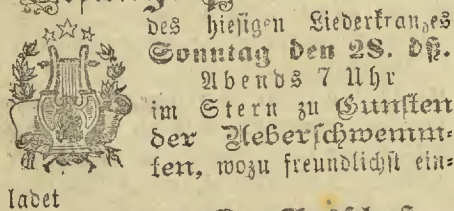 des hiesigen Liederkranzes
Sonntag den 28. dß.
Abends 7 Uhr
im Stern zu Gunsten
der Ueberschwemm-
ten, wozu freundlichst ein-
ladet